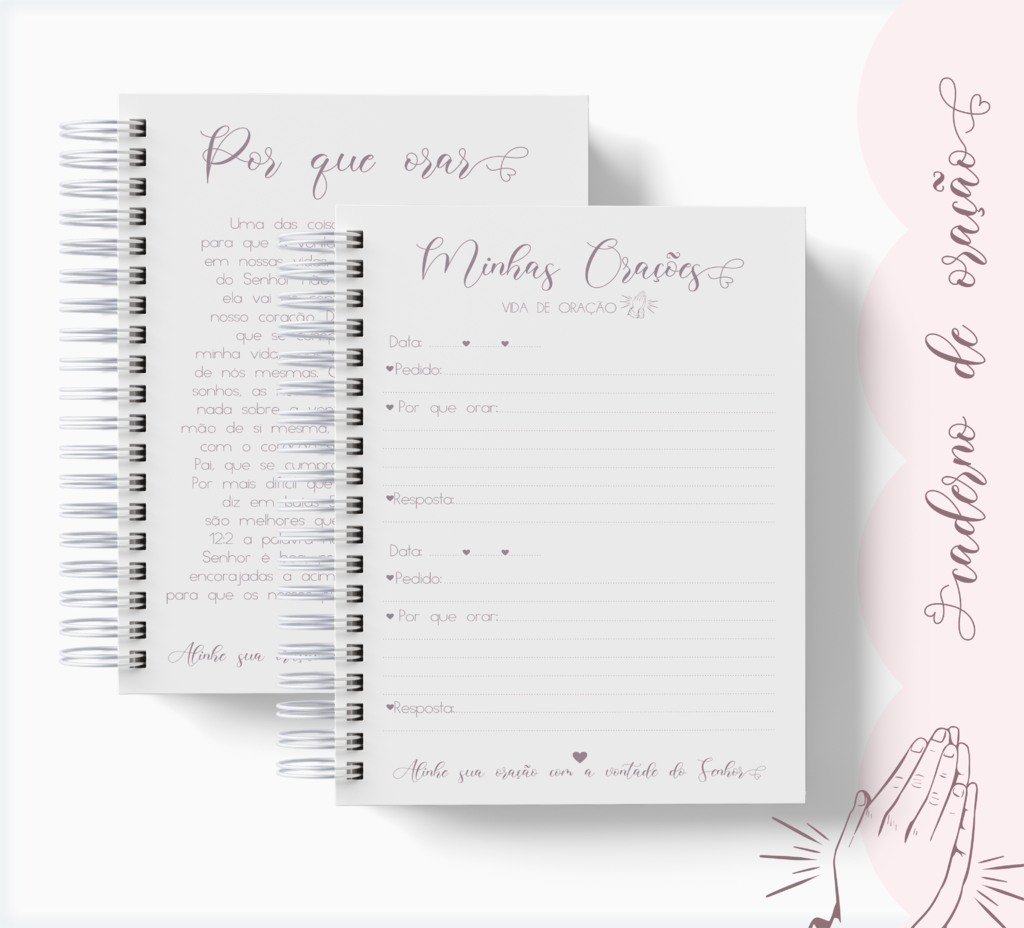 Por que orar
Uma das
para que
em nossas
do Senhor não
ela vai
nosso coração
que se
minha vida,
de nós mesmas.
sonhos, as
nada sobre a
mão de si mesma,
com o
Pai, que se cumpra
Por mais difícil que
diz em Isaías
são melhores que
12:2 a palavra
Senhor é
encorajadas a
para que os
Alinhe sua
Minhas Orações
VIDA DE ORAÇÃO
Data:
Pedido:
Por que orar:
Resposta:
Data:
Pedido:
Por que orar:
Resposta:
Alinhe sua oração com a vontade do Senhor
caderno de oração